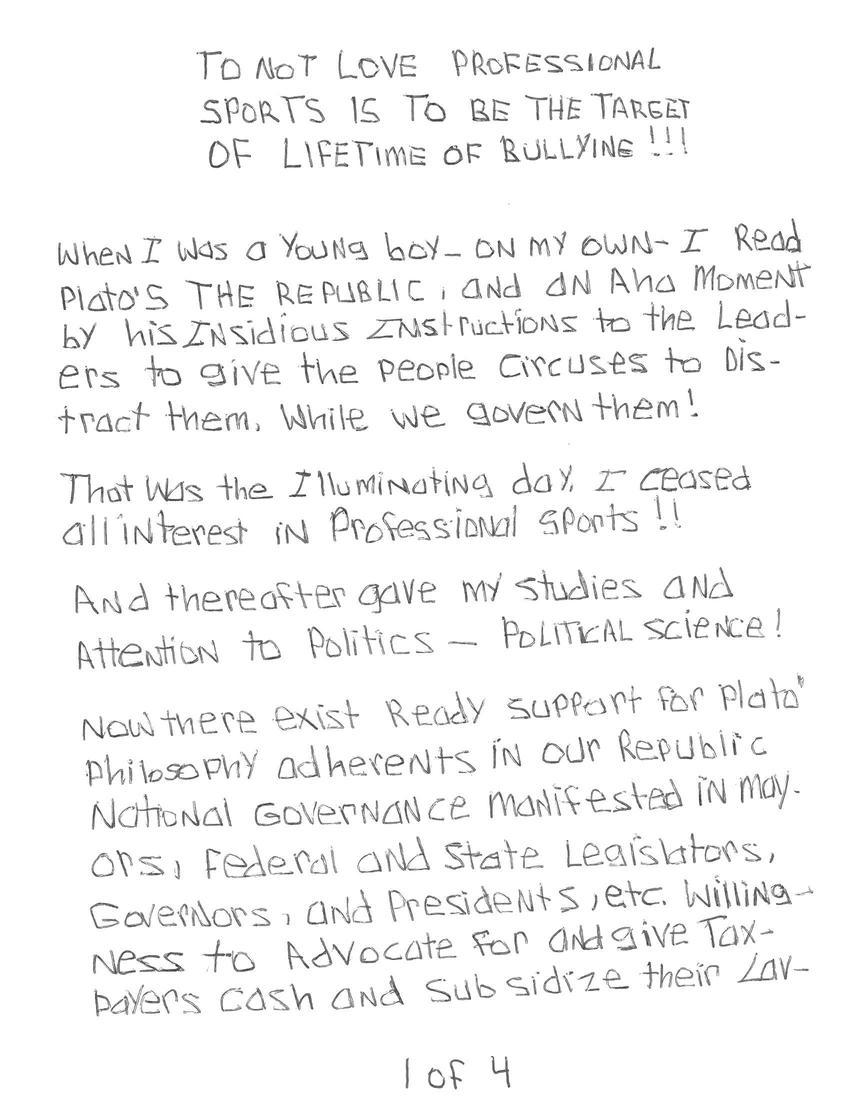 TO NOT LOVE PROFESSIONAL
SPORTS IS TO BE THE TARGET
OF LIFETIME OF BULLYING !!!
When I was a Young boy - ON MY OWN - I Read
Plato's THE REPUBLIC, and an Aha Moment
by his INsidious INstructions to the Lead-
ers to give the people circuses to Dis-
tract them, While we govern them!
That Was the Illuminating day, I ceased
all interest in Professional sports !!
And thereafter gave my studies and
Attention to Politics — POLITICAL science!
Now there exist Ready support for Plato'
Philosophy adherents in our Republic
National Governance manifested in may-
ors, Federal and State Legislators,
Governors, and Presidents, etc. Willing-
ness to Advocate for and give Tax-
payers Cash and Subsidize their Lav-
1 of 4